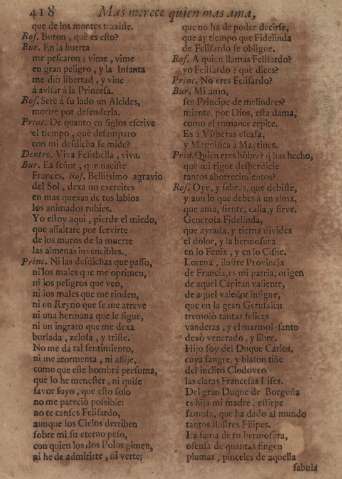 418 Mas merece quien mas ama,
que de los montes traxiste.
Ros. Buron, què es esto?
Bur. En la huerta
me pescaron: vime, vime
en gran peligro, y la Infanta
me diò libertad, y vine
à avisar à la Princesa.
Ros. Serè à su lado un Alcides,
morire por defenderla.
Princ. De quanto en siglos escrive
el tiempo, què desamparo
con mi desdicha se mide?
Dentro. Viva Felisbella, viva.
Bur. Ea señor, que
Frances. Ros. Bellissimo agravio
del Sol, dexa no exercites
en mas quexas de tus labios
los animados rubies.
Yo estoy aqui, pierde el miedo,
que assaltarè por servirte
de los muros de la muerte
las almenas invencibles.
Princ. Ni las desdichas que passo,
ni los males que me oprimen,
ni los peligros que veo,
ni los males que me rinden,
ni un Reyno que se me atreve
ni una hermana que le sigue,
ni un ingrato que me dexa
burlada, zelosa, y triste.
No me dà tal sentimiento,
ni me atormenta, ni aflige,
como que este hombre presuma,
que lo he menester, ni quise
favor suyo, que esto solo
no me pareciò possible:
no te canses Felisardo,
aunque los Cielos derriben
sobre mi su eterno peso,
con quien los dos Polos gimen,
ni he de admitirte, ni verte;
que no ha de poder decirse,
que ay tiempo que Fidelinda
de Felisardo se obligue.
Ros. A quien llamas Felisardo?
yo Felisardo? què dices?
Princ. No eres Felisardo?
Bur. Mi amo,
ser Principe de melindres?
miente, por Dios, esta dama,
como el romance
Es à Visperas
y Magnifica à Maitines.
Princ. Quien eres hombre que has hecho,
que assi rigor desperdicie
tantos aborrecimientos?
Ros. Oye, y sabràs, què debiste,
y aun lo que debes à un alma,
que ama, siente, calla, y sirve.
Generosa Fidelinda,
que ayrada, y tierna divides
el dolor, y la hermosura
en lo Fenix, y en lo Cisne.
Lorena, ilustre Provincia
de Francia, es mi patria, origen
de aquel Capitan valiente,
de aquel valeroso insigne,
que en la gran Gerusalen
tremolò tantas felices
vanderas, y el marmol santo
dexò venerado, y libre.
Hijo soy del Duque Carlos,
cuya sangre, y blason tiñe
del inclito Clodoveo
las claras Francesas Lises.
Del gran Duque de Borgoña
es hija mi madre, estirpe
famosa, que ha dado al mundo
tantos ilustres Filipes.
La fama de tu hermosura,
ossenta de quantas fingen
plumas, pinceles de aquella
fabula